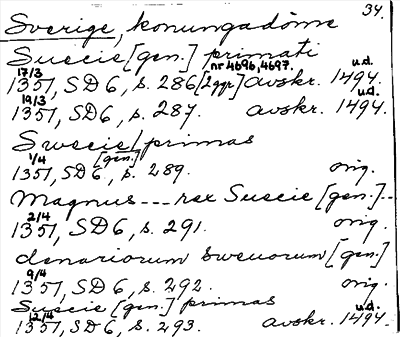 34.
Sverige, konungadöme
Suecie [gen.] primati
17/3 nr 4696, 4697. u.d.
1351, SD 6, s. 286 [2 ggr] avskr. 1494.
19/3 u.d.
1351, SD 6, s. 287. avskr. 1494.
Swecie / primas
1/4 [gen.]
1351, SD 6, s. 289. orig.
Magnus --- rex Suecie [gen.]--
2/4
1351, SD 6, s. 291. orig.
denariorum sweuorum [gen.]
9/4
1351, SD 6, s. 292. orig.
Suecie [gen.] primas
12/4 u.d.
1351, SD 6, s. 293. avskr. 1494.